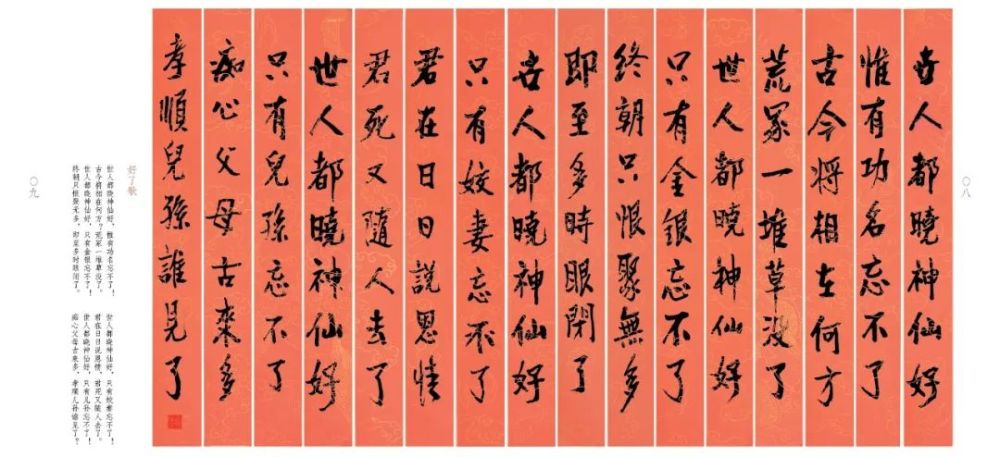 〇八
世人都曉神仙好
惟有功名忘不了
古今將相在何方
荒冢一堆草没了
世人都曉神仙好
只有金銀忘不了
終朝只恨聚無多
即至多時眼閉了
世人都曉神仙好
只有姣妻忘不了
君在日日說恩情
君死又隨人去了
世人都曉神仙好
只有兒孫忘不了
痴心父母古來多
孝順兒孫誰見了
好了歌
世人都晓神仙好，惟有功名忘不了！
古今将相在何方？荒冢一堆草没了。
世人都晓神仙好，只有金银忘不了！
终朝只恨聚无多，即至多时眼闭了。
世人都晓神仙好，只有姣妻忘不了！
君在日日说恩情，君死又随人去了。
世人都晓神仙好，只有儿孙忘不了！
痴心父母古来多，孝顺儿孙谁见了？
〇九